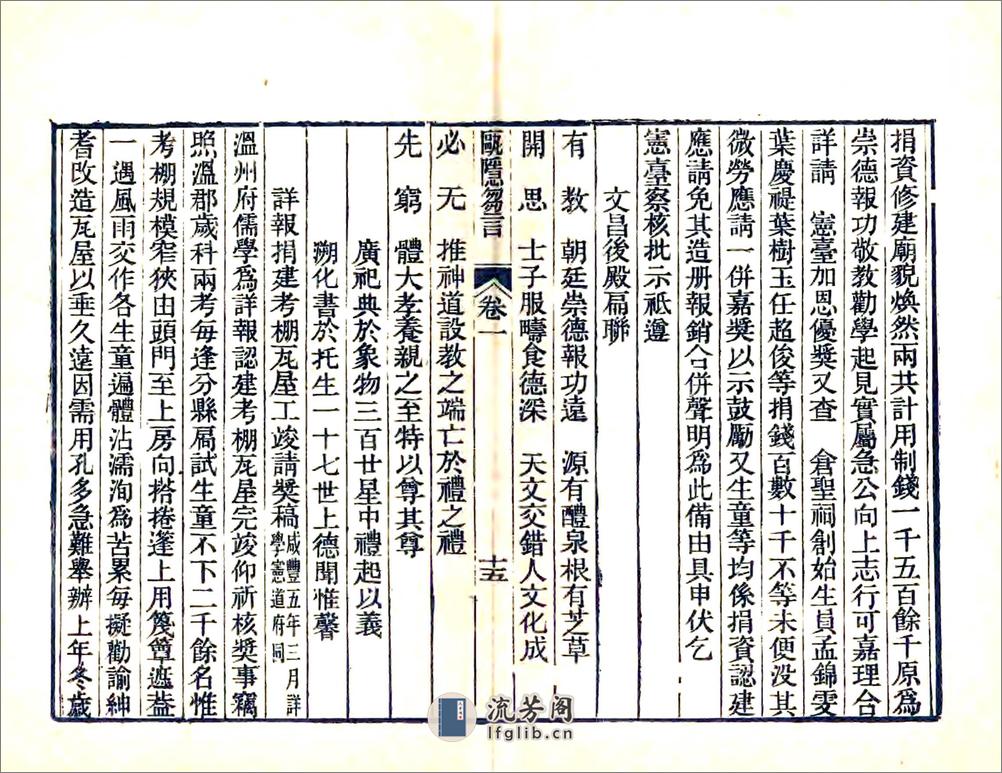 捐資修建廟貌煥然兩共計用制錢一千五百餘千原爲
崇德報功敬教勸學起見實屬急公向上志行可嘉理合
詳請　憲臺加恩優獎又查　倉聖祠創始生員孟錦雯
葉慶禔葉樹玉任超俊等捐錢百數十千不等未便没其
微勞應請一併嘉獎以示鼓勵又生童等均係捐資認建
應請免其造册報銷合併聲明爲此備由具申伏乞
憲臺察核批示祗遵
文昌後殿扁聯
有教　朝廷崇德報功遠　源有醴泉根有芝草
開思　士子服疇食德深　天文交錯人文化成
甌隱芻言　卷一　十五
必无　推神道設教之端亡於禮之禮
先窮　體大孝養親之至特以尊其尊
廣祀典於象物三百世星中禮起以義
溯化書於托生一十七世上德聞惟馨
詳報捐建考棚瓦屋工竣請獎稿咸豐五年三月詳學憲道府同
溫州府儒學爲詳報認建考棚瓦屋完竣仰祈核獎事竊
照溫郡歲科兩考每逢分縣扃試生童不下二千餘名惟
考棚規模窄狹由頭門至上房向搭捲蓬上用篾簟遮葢
一遇風雨交作各生童遍體沾濡洵爲苦累每擬勸諭紳
耆改造瓦屋以垂久遠因需用孔多急難舉辦上年冬歲
流芳阁
lfglib.cn